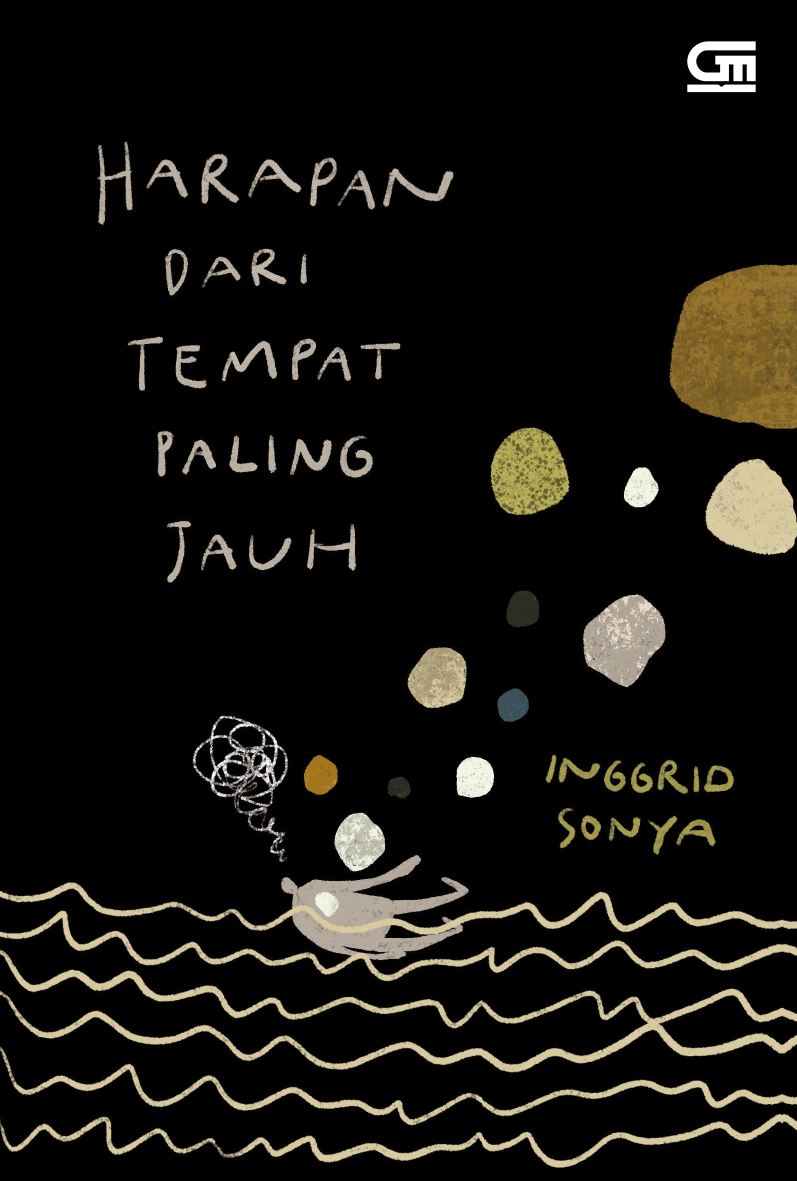 GM
HARAPAN
DARI
TEMPAT
PALING
JAUH
INGGRID
SONYA